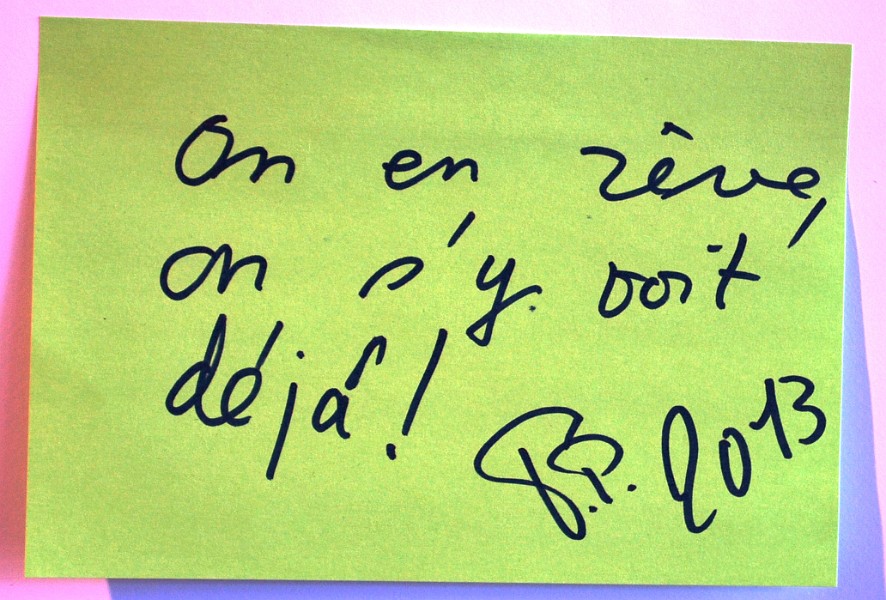 On en rêve,
on s'y voit
déjà!
2013